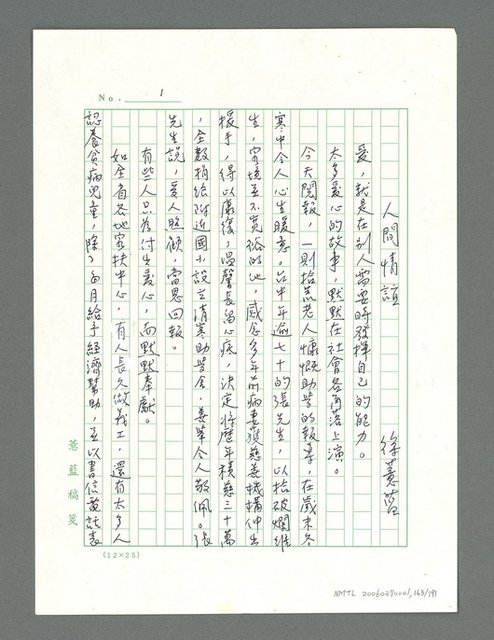 No. 1
人間情誼
徐薏藍
愛，就是在別人需要時發揮自己的能力。
太多愛心的故事，默默在社會各角落上演。
今天閱報，一則拾荒老人慷慨助學的報導，在歲末冬
寒中令人心生暖意。台中年逾七十的張先生，以拾破爛維
生，家境並不寬裕的他，感念多年前病妻獲慈善機構伸出
援手，得以康復，溫馨長留心底，決定將歷年積蓄三十萬
，全數捐給附近國小設立清寒助學金，義舉令人敬佩。張
先生說，受人照顧，當思回報。
有些人只為付出愛心，而默默奉獻。
如全省各地家扶中心，有人長久做義工，還有太多人
認養貧病兒童，除了每月給予經濟幫助，並以書信電話表
薏藍稿箋
(12×25)
NMTL 20060390001,163/191